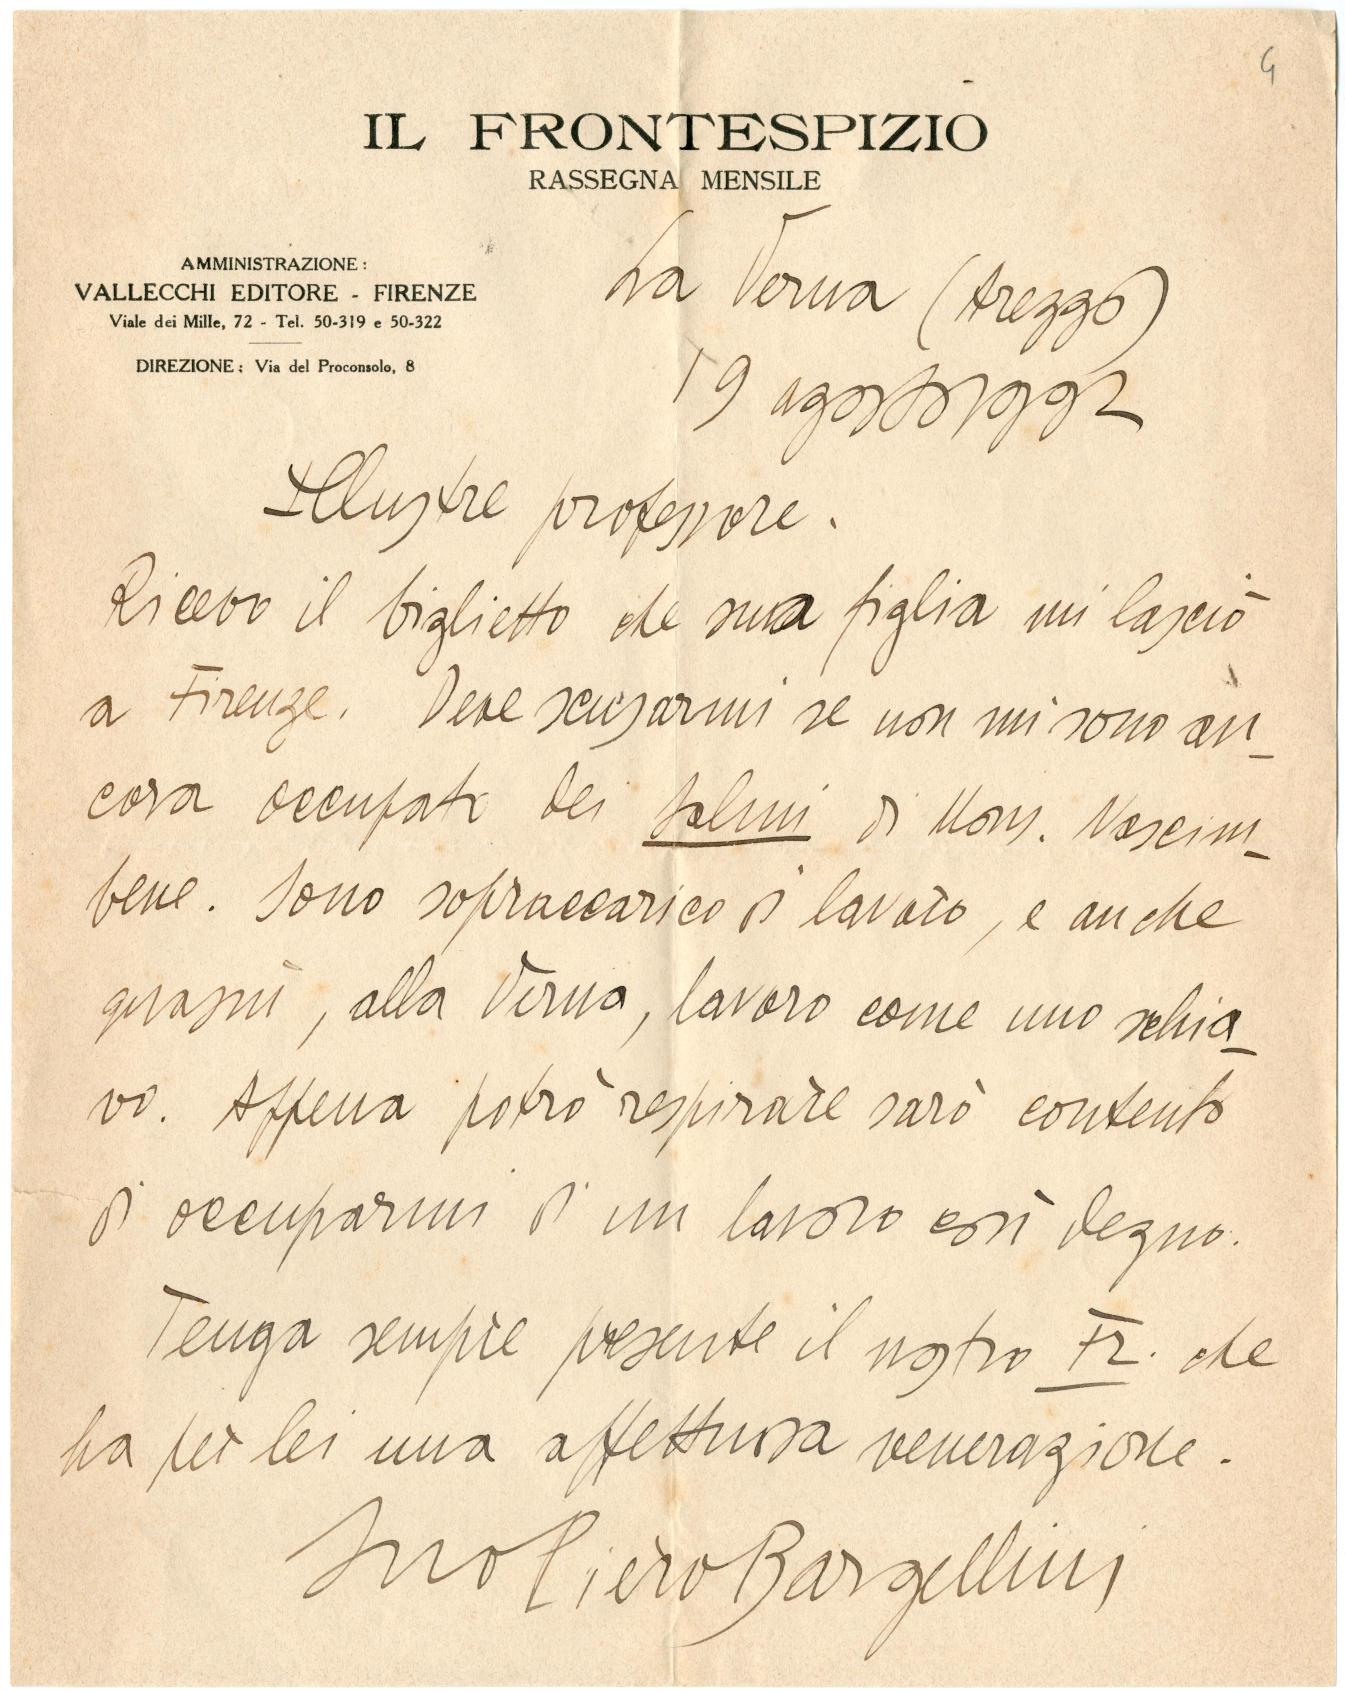 4
IL FRONTESPIZIO
RASSEGNA MENSILE
AMMINISTRAZIONE:
VALLECCHI EDITORE - FIRENZE
Viale dei Mille, 72 - Tel. 50-319 e 50-322
DIREZIONE: Via del Proconsolo, 8
La Verna (Arezzo)
19 agosto
Illustre professore.
Ricevo il biglietto che sua figlia mi lasciò
a Firenze. Deve scusarmi se non mi sono an-
cora occupato dei Salmi di Mons. Nascim-
bene. Sono sopraccarico di lavoro, e anche
quassù, alla Verna, lavoro come uno schia-
vo. Appena potrò respirare sarò contento
di occuparmi di un lavoro così degno.
Tenga sempre presente il nostro Fr. che
ha per lei una affettuosa venerazione.
Suo Piero Bargellini